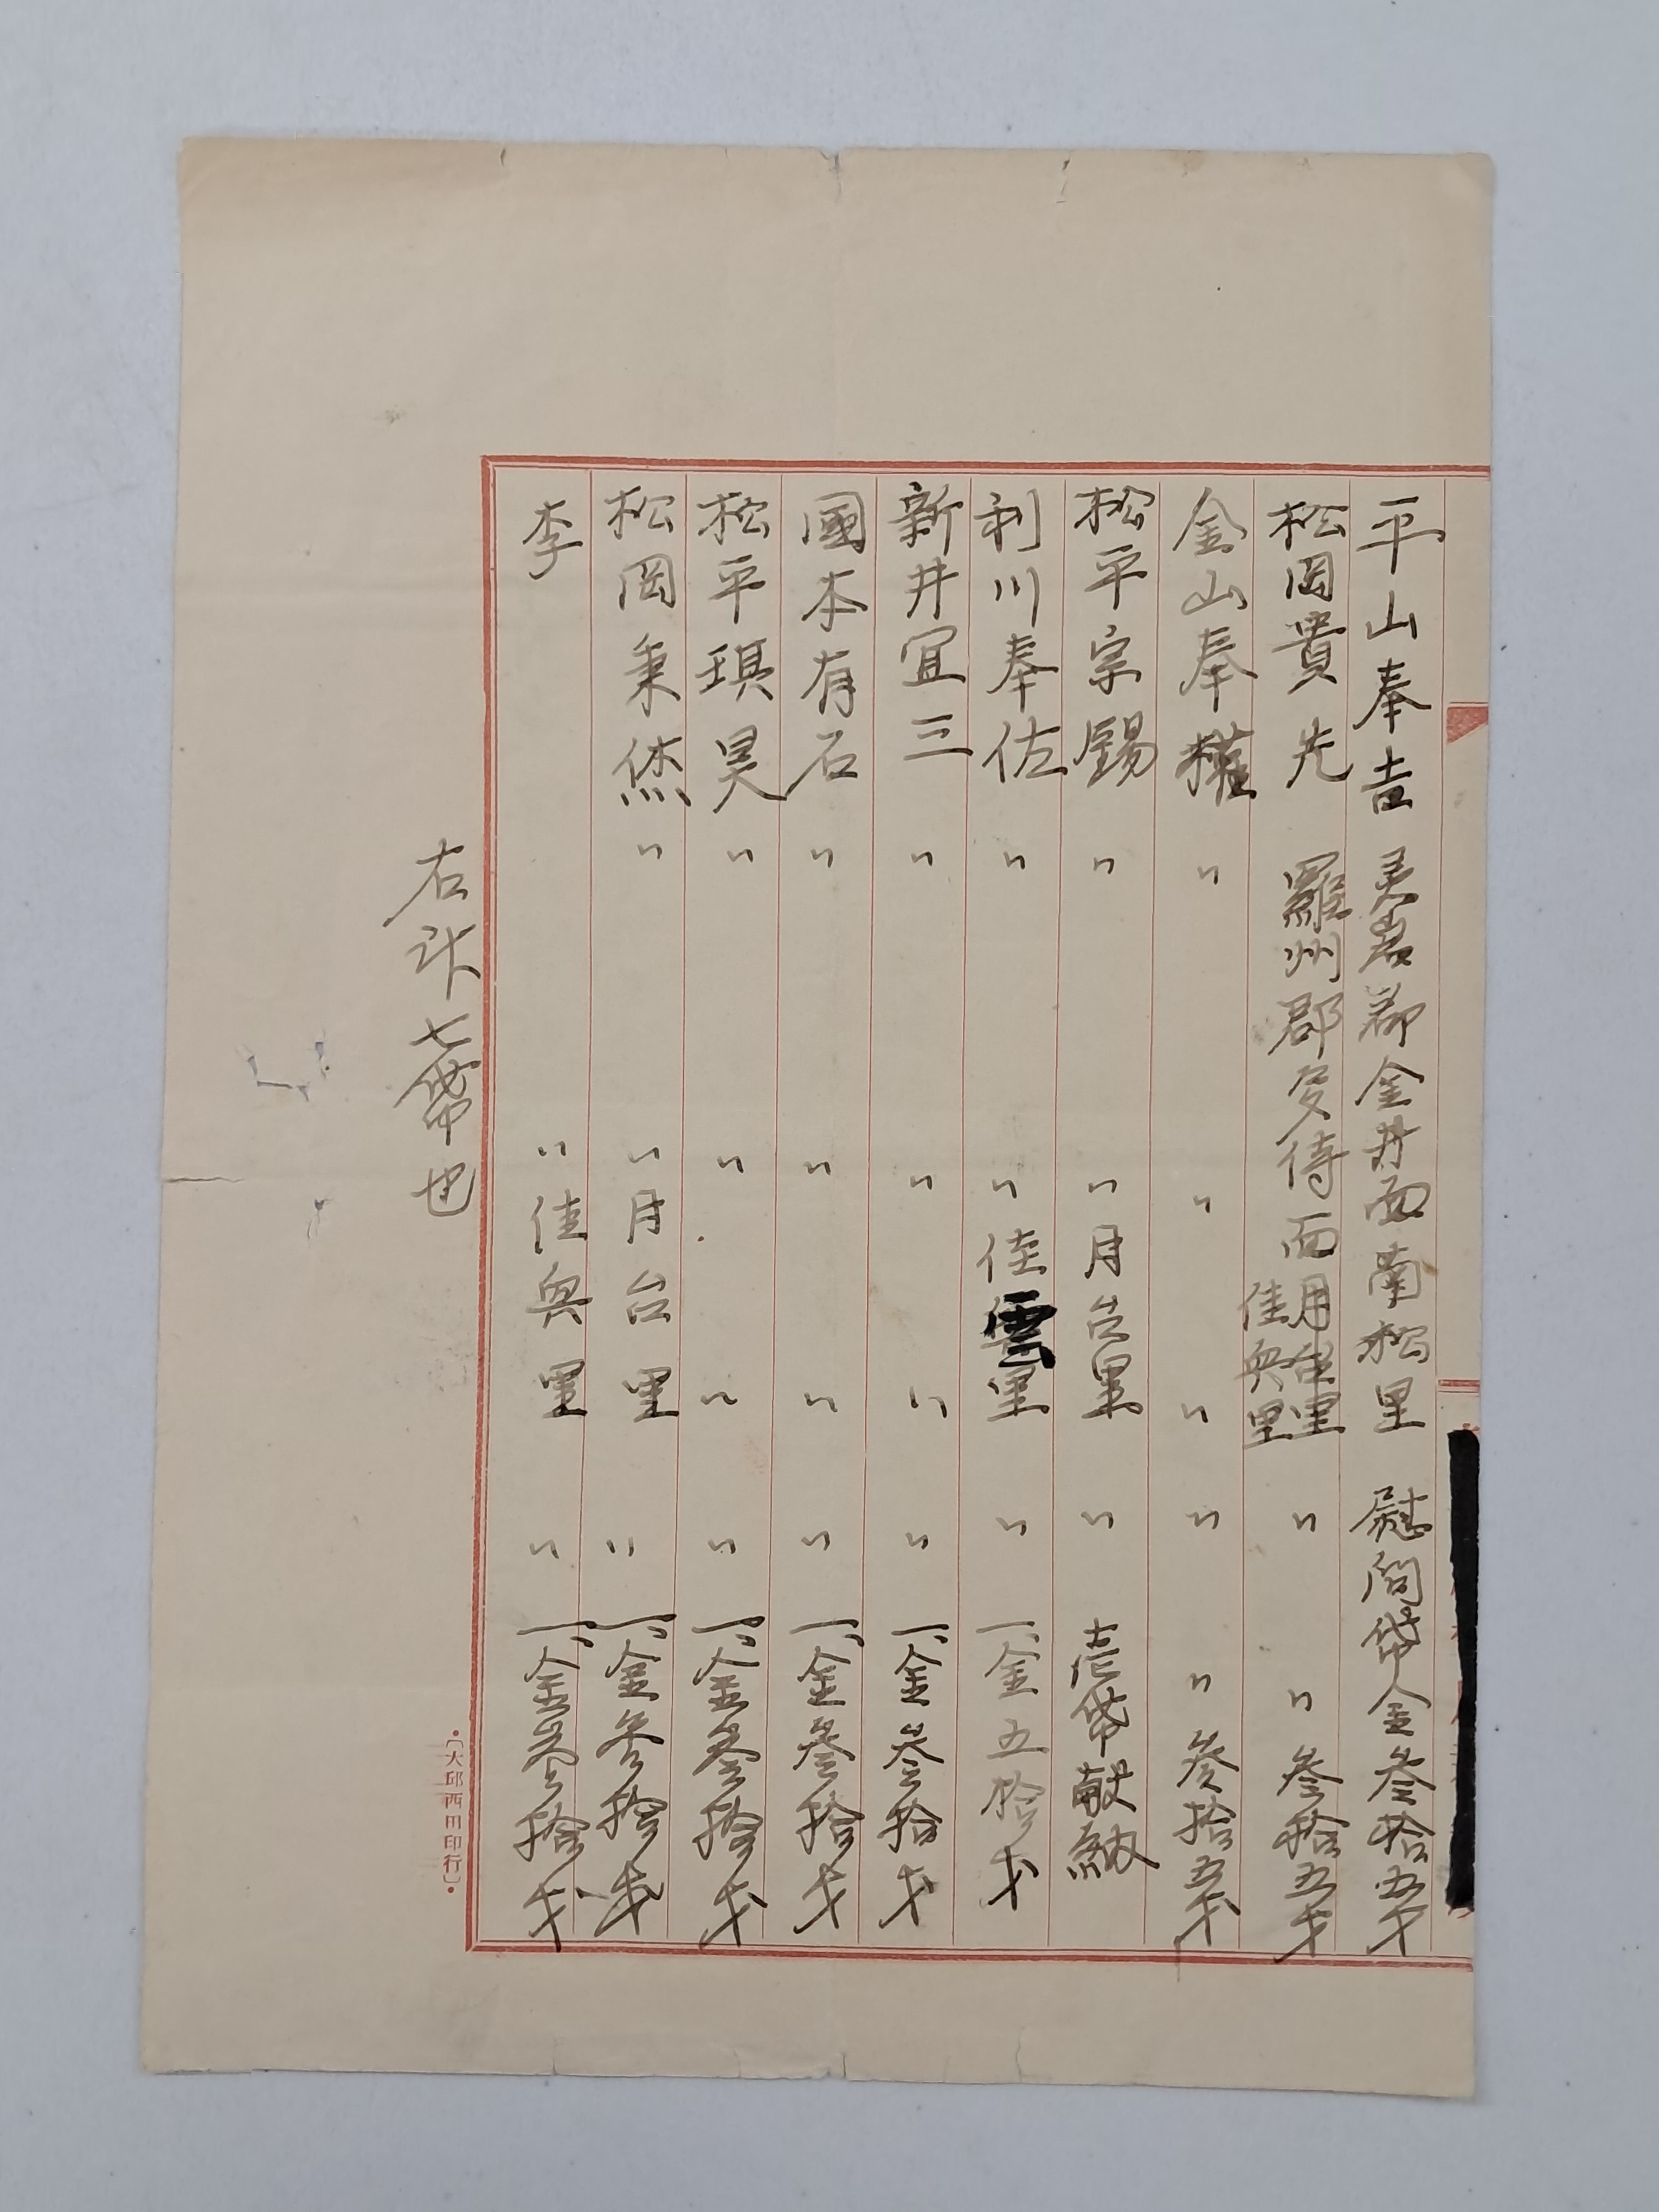 平山奉吉 灵岩郡金井面南松里 慰问袋金叁拾五才
松岡貴先 羅州郡多侍面月台里 〃 〃叁拾五才
佳興里
金山奉權 〃 〃 〃 〃 〃叁拾五才
松平宗錫 〃 〃月台里 〃 壱袋献納
利川奉佐 〃 〃佳雲里 〃 一、金五拾才
新井宜三 〃 〃 〃 〃 一、金叁拾才
國本有石 〃 〃 〃 〃 一、金叁拾才
松平琪昊 〃 〃 〃 〃 一、金叁拾才
松岡秉烋 〃 〃月台里 〃 一、金参拾才
李 〃佳興里 〃 一、金参拾才
右計七袋也
(大邱西田印行)